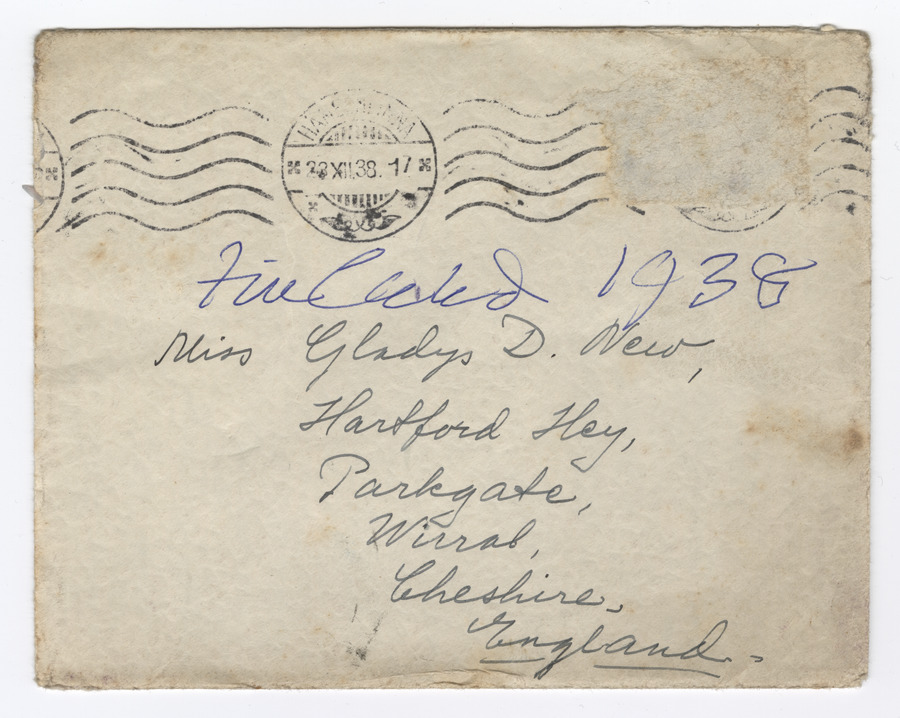 23 XII.38. 17
Finland 1938
Miss Gladys D. New,
Hartford Hey,
Parkgate,
Wirral,
Cheshire,
England.